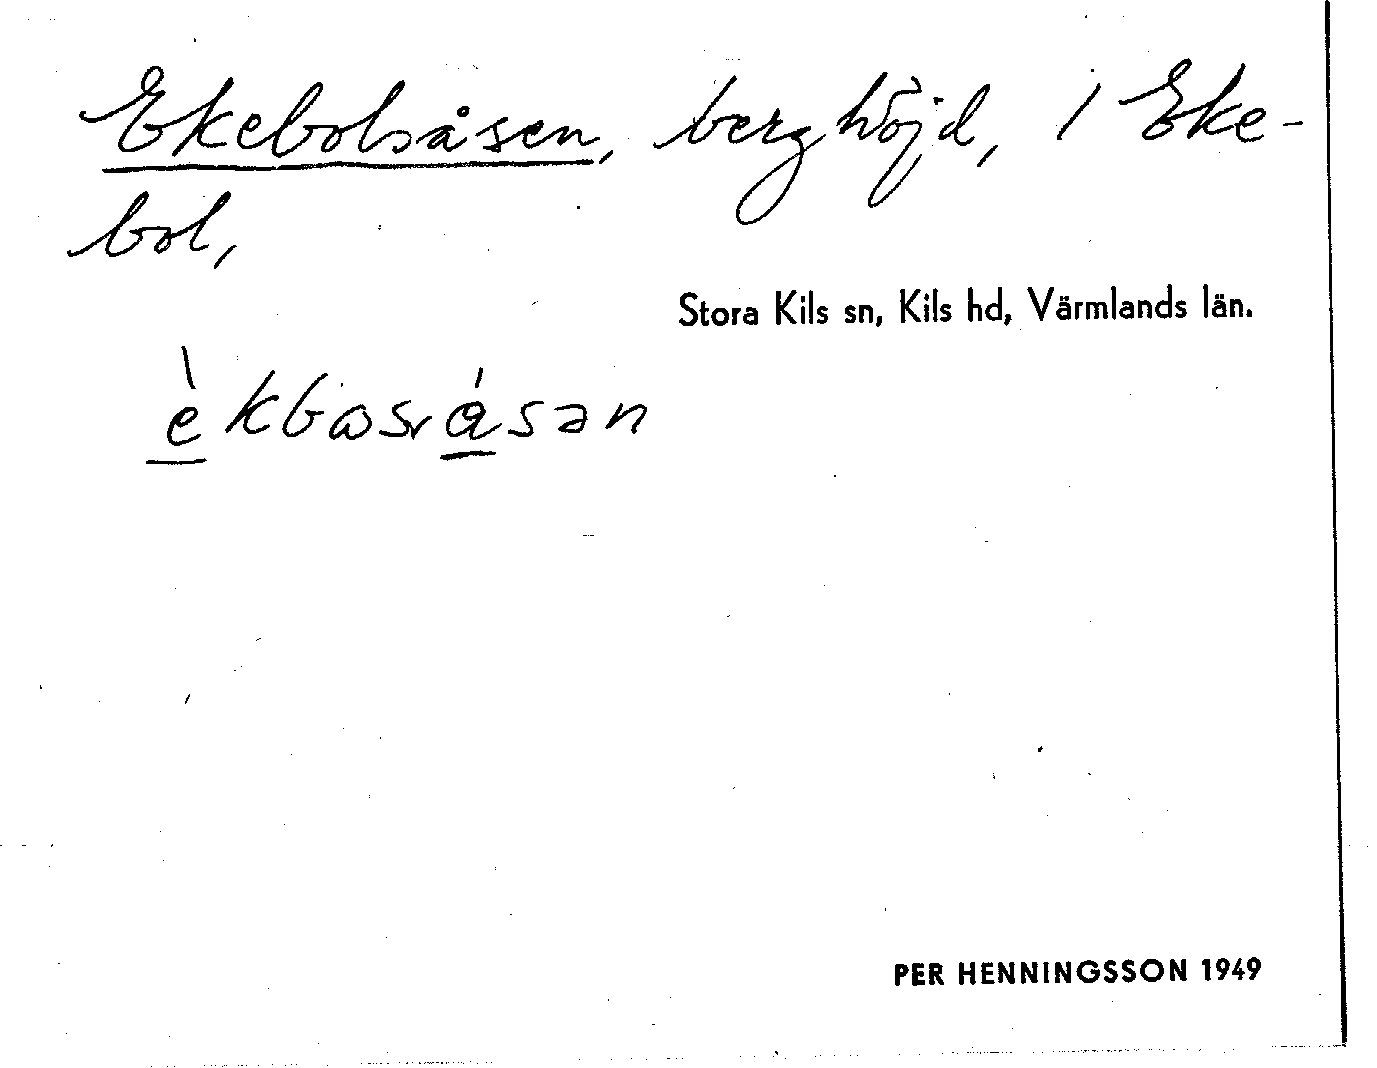 Ekebolsåsen, berghöjd, i Eke-
bol,
Stora Kils sn, Kils hd, Värmlands län.
PER HENNINGSSON 1949